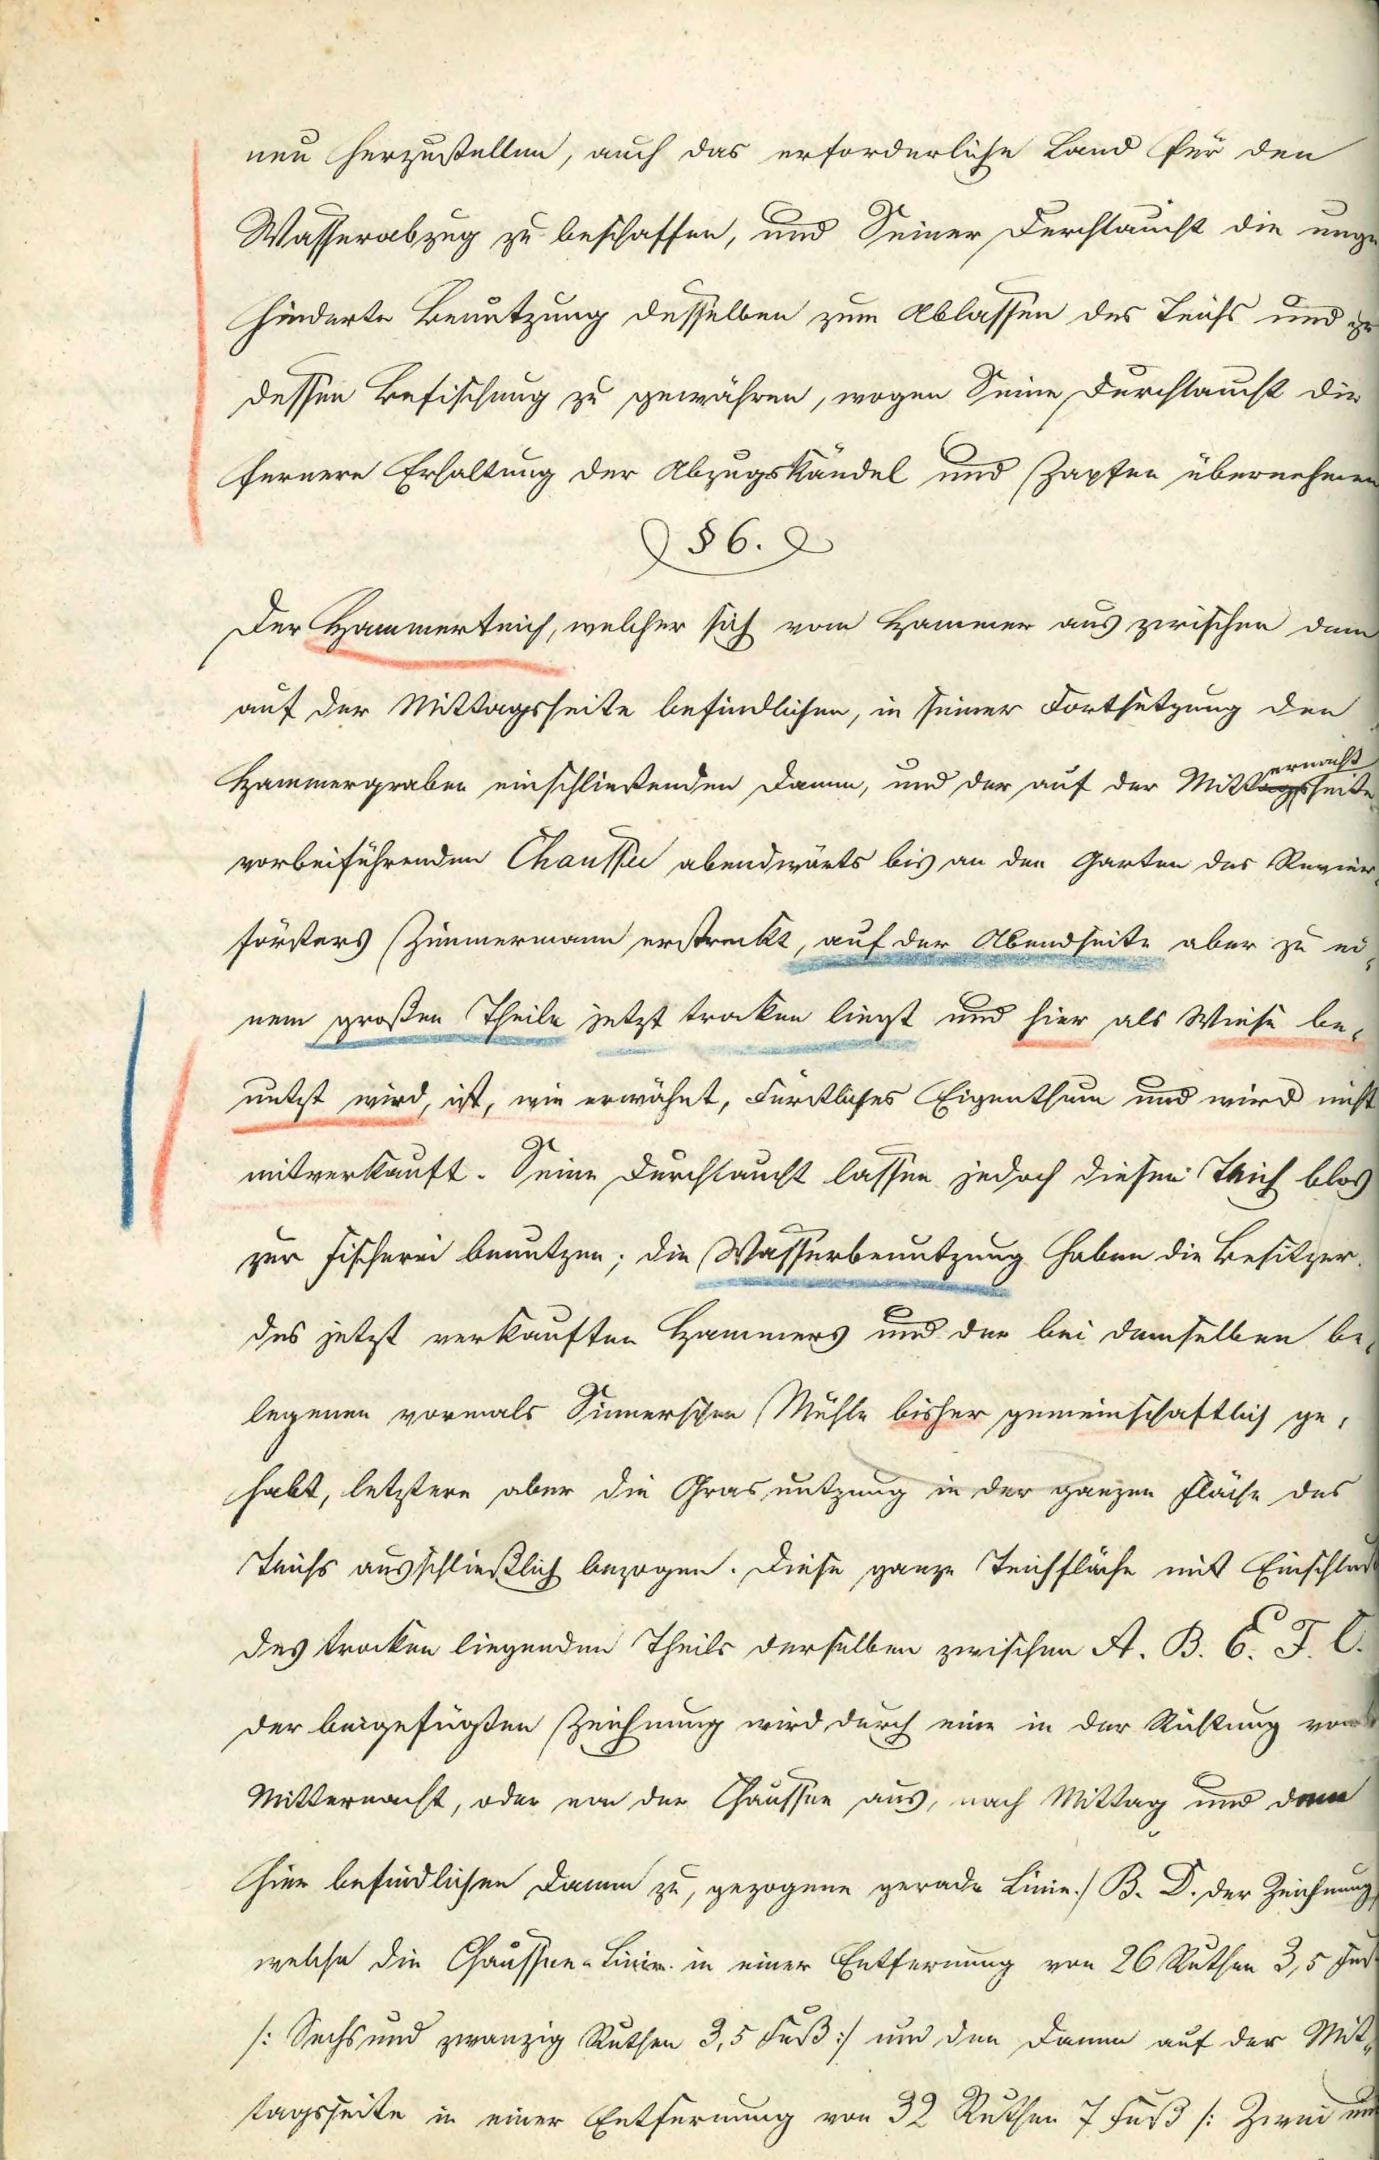 neu herzustellen, auch das erforderliche Land für den
Wasserabzug zu beschaffen, und Seiner Durchlaucht die unge
hinderte Benutzung desselben zum Ablassen des Teichs und zu
dessen Befischung zu gewähren, wogen Seine Durchlaucht die
fernere Erhaltung der Abzugskändel und Zapfen übernehmen
§ 6.
Der Hammerteich, welcher sich vom Hammer aus zwischen dem
auf der Mittagsseite befindlichen, in seiner Fortsetzung den
ernacht
Hammergraben einschließenden Damm, und der auf der Mittagsseite
vorbeiführenden Chaussee abendwärts bis an den Garten des Revier-
försters Zimmermann erstreckt, auf der Abendseite aber zu ei-
nem großen Theile jetzt trocken liegt und hier als Wiese be-
nutzt wird, ist, wie erwähnt, Fürstliches Eigenthum und wird nicht
mitverkauft. Seine Durchlaucht lassen jedoch diesen Teich blos
zur Fischerei benutzen; die Wasserbenutzung haben die Besitzer
des jetzt verkauften Hammers und der bei demselben be-
legenen vormals Sinnerschen Mühle bisher gemeinschaftlich ge-
habt, letztere aber die Grasnutzung in der ganzen Fläche des
Teichs ausschließlich bezogen. Diese ganze Teichfläche mit Einschluß
des trocken liegenden Theils derselben zwischen A. B. E. F. C.
der beigefügten Zeichnung wird durch eine in der Richtung von
Mitternacht, oder von der Chaussee aus, nach Mittag und dem
hier befindlichen Damm zu, gezogene gerade Linie /B. D. der Zeichnung/
welche die Chaussee-Linie in einer Entfernung von 26 Ruthen 3,5 Fuß
/: Sechs und zwanzig Ruthen 3,5 Fuß :/ und den Damm auf der Mit-
tagsseite in einer Entfernung von 32 Ruthen 7 Fuß /: Zwei und